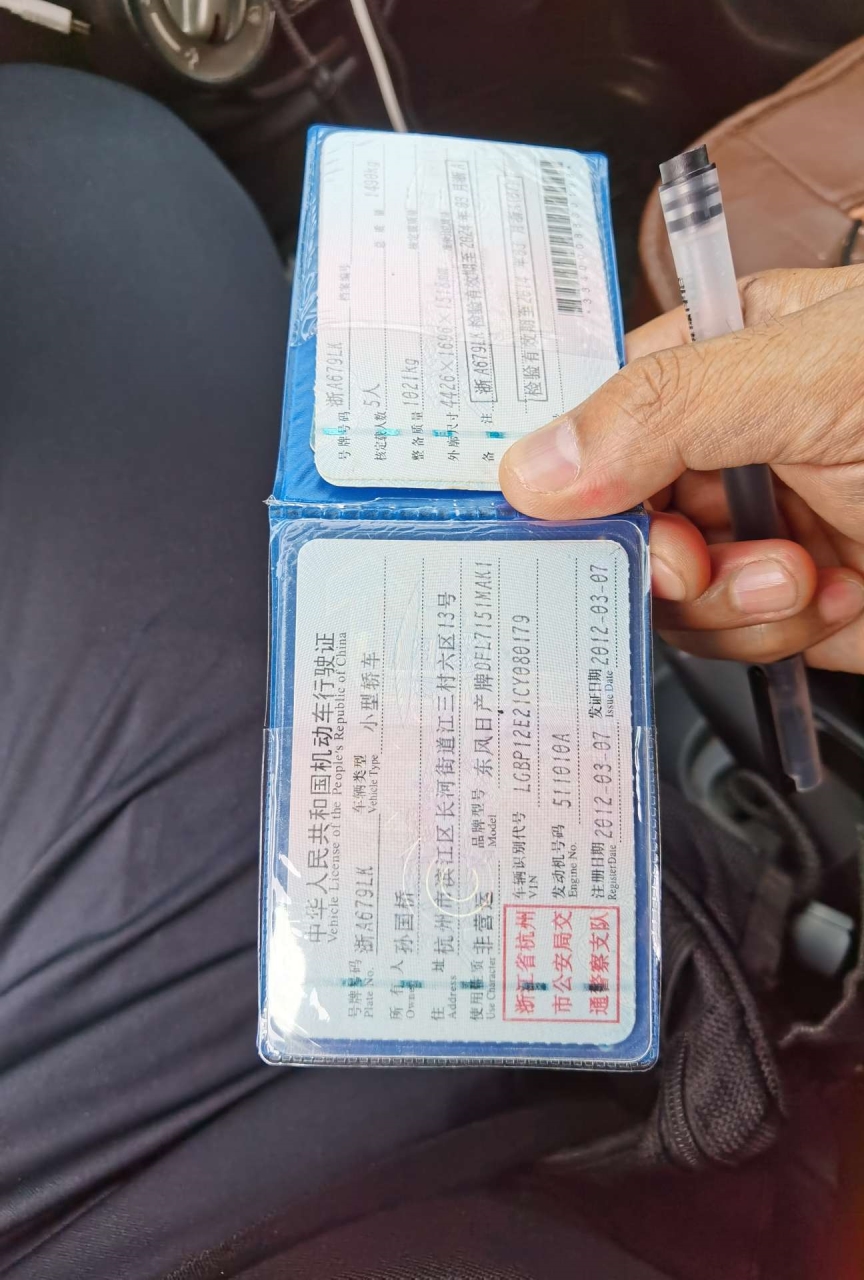 中华人民共和国机动车行驶证
Vehicle License of the People's Republic of China
号牌号码 浙A679LK 车辆类型 小型轿车
Plate No. Vehicle Type
所有人 孙国桥
Owner
住址 杭州市滨江区长河街道江三村六区13号
Address
使用性质 非营运 品牌型号 东风日产牌DFL7151MAK1
Use Character Model
浙江省杭州
市公安局交
通警察支队
车辆识别代号 LGBP12E21CY080179
VIN
发动机号码 511010A
Engine No.
注册日期 2012-03-07 发证日期 2012-03-07
Register Date Issue Date
号牌号码 浙A679LK 档案编号
核定载人数 5人 总质量 1490kg
整备质量 1021kg 核定载质量
外廓尺寸 4426×1696×1518mm
备注 浙A679LK 检验有效期至2024年03月浙A
检验有效期至2014年03月